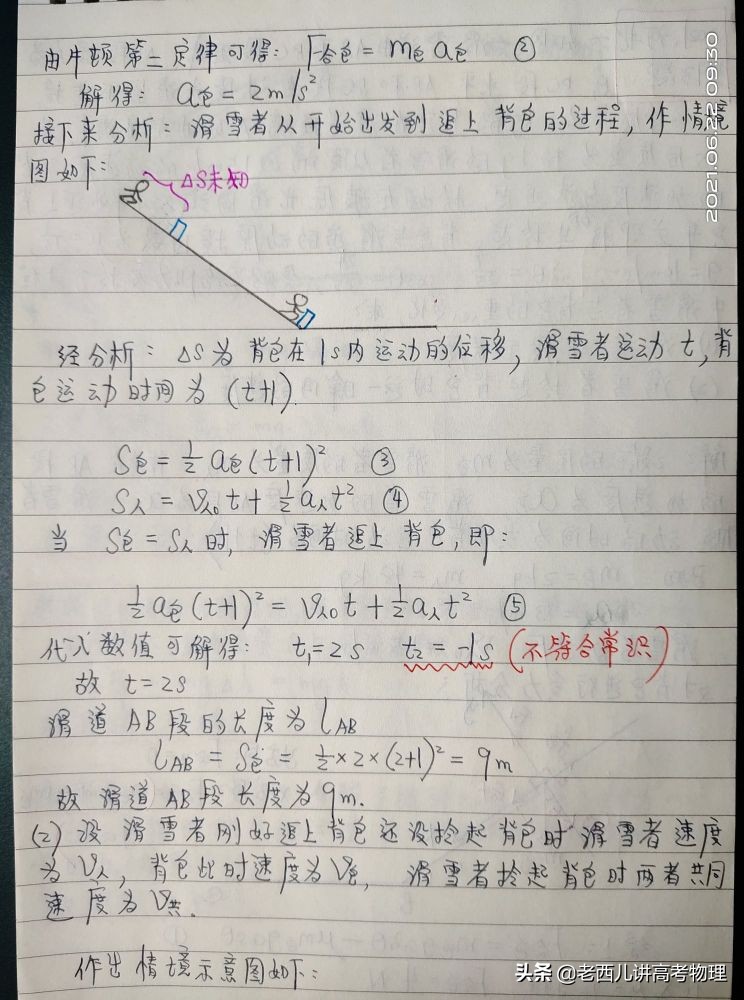 由牛顿第二定律可得: F合包 = m包 a包 ②
解得: a包 = 2m/s²
接下来分析: 滑雪者从开始出发到追上背包的过程, 作情境
图如下:
△S未知
经分析: △S为背包在1s内运动的位移, 滑雪者运动 t, 背
包运动时间为 (t+1).
S包 = ½ a包 (t+1)² ③
S人 = v人0 t + ½ a人 t² ④
当 S包 = S人 时, 滑雪者追上背包, 即:
½ a包 (t+1)² = v人0 t + ½ a人 t² ⑤
代入数值可解得: t₁ = 2s t₂ = -1s (不符合常识)
故 t = 2s
滑道 AB段的长度为 lAB
lAB = S包 = ½×2×(2+1)² = 9m
故滑道AB段长度为9m.
(2) 设滑雪者刚好追上背包还没拎起背包时滑雪者速度
为 v人, 背包此时速度为 v包, 滑雪者拎起背包时两者共同
速度为 v共.
作出情境示意图如下:
2021.06.22 09:30
头条 @老西儿讲高考物理